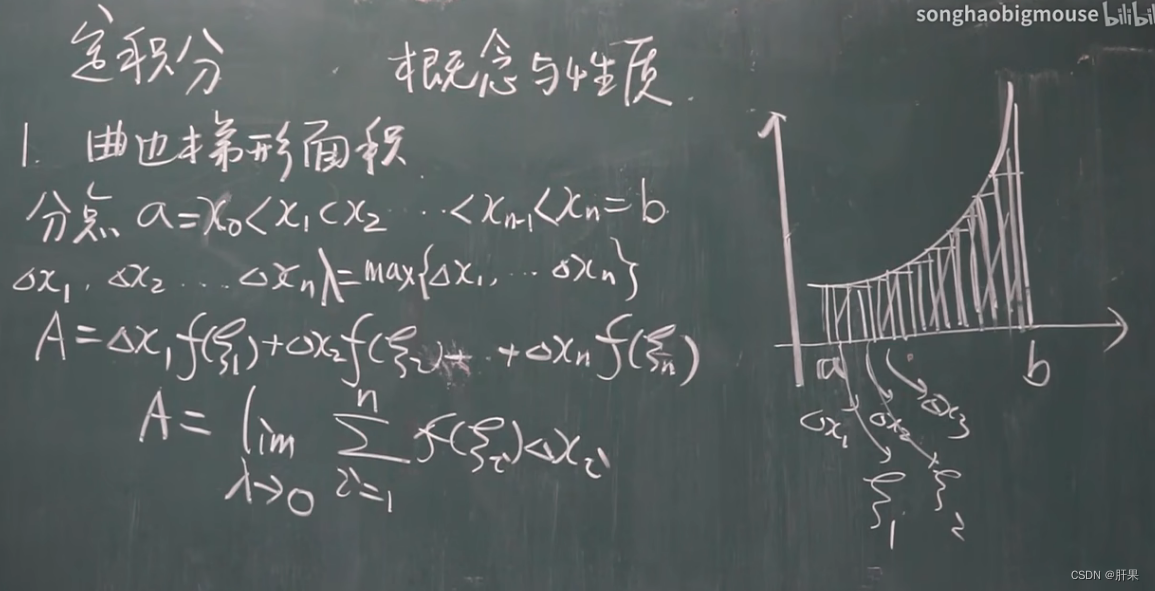 songhaobigmouse bilibili
定积分 概念与性质.
1. 曲边梯形面积
分点 a=x₀<x₁<x₂ ⋯ <xₙ₋₁<xₙ=b
Δx₁, Δx₂ ⋯ Δxₙ λ=max{Δx₁, ⋯ Δxₙ}
A=Δx₁f(ξ₁)+Δx₂f(ξ₂)+ ⋯ +Δxₙf(ξₙ)
n
A= lim ∑ f(ξᵢ)Δxᵢ
λ→0 i=1
a b
Δx₁ Δx₂ Δx₃
ξ₁ ξ₂
CSDN @肝果